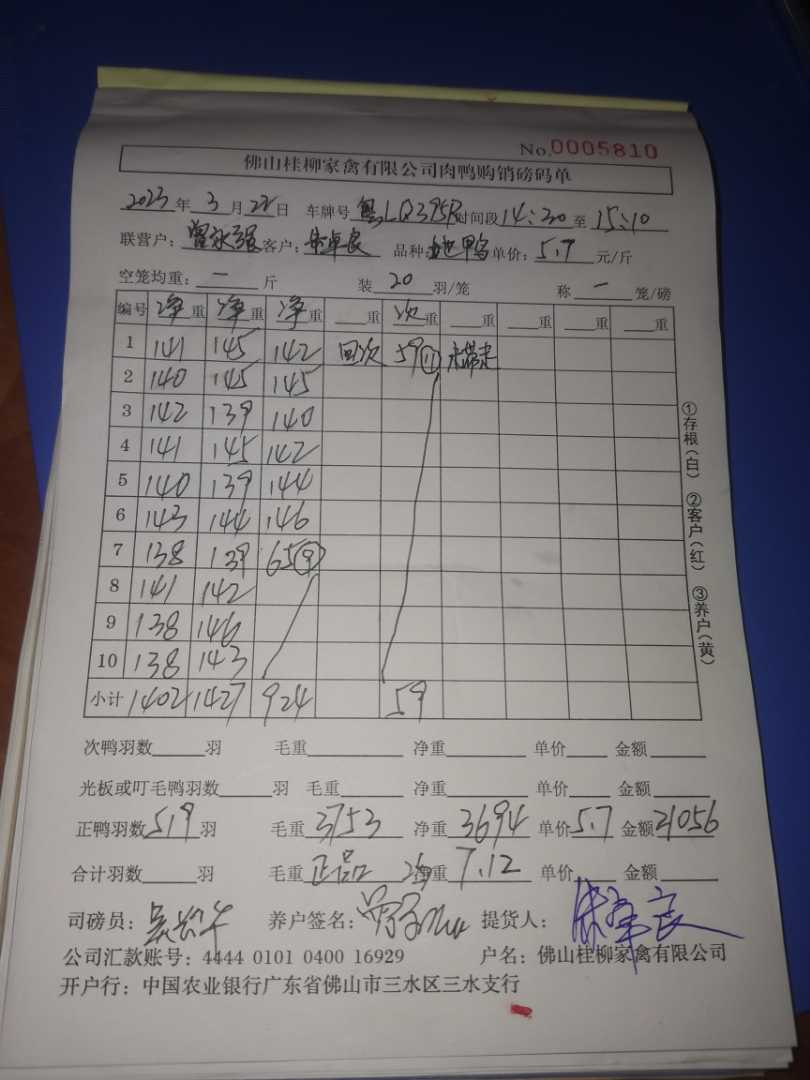 No.0005810
佛山桂柳家禽有限公司肉鸭购销磅码单
2023年3月22日 车牌号 粤LQ395R 时间段 14:20至15:10
联营户: 曾永强 客户: 朱卓良 品种: 土也鸭 单价: 5.7 元/斤
空笼均重: 一 斤 装 20 羽/笼 称 一 笼/磅
编号 净重 净重 净重 重 次重 重 重 重 重
1 141 145 142 回次 59⑪ 未带走
2 140 145 145
3 142 139 140
4 141 145 142
5 140 139 144
6 143 144 146
7 138 139 65⑨
8 141 142
9 138 146
10 138 143
小计 1402 1427 924 59
次鸭羽数 羽 毛重 净重 单价 金额
光板或叮毛鸭羽数 羽 毛重 净重 单价 金额
正鸭羽数 519 羽 毛重 3753 净重 3694 单价 5.7 金额 21056
合计羽数 羽 毛重 正品 均 净重 7.12 单价 金额
司磅员: 养户签名: 提货人: 朱卓良
公司汇款账号: 4444 0101 0400 16929 户名: 佛山桂柳家禽有限公司
开户行: 中国农业银行广东省佛山市三水区三水支行
①存根(白) ②客户(红) ③养户(黄)